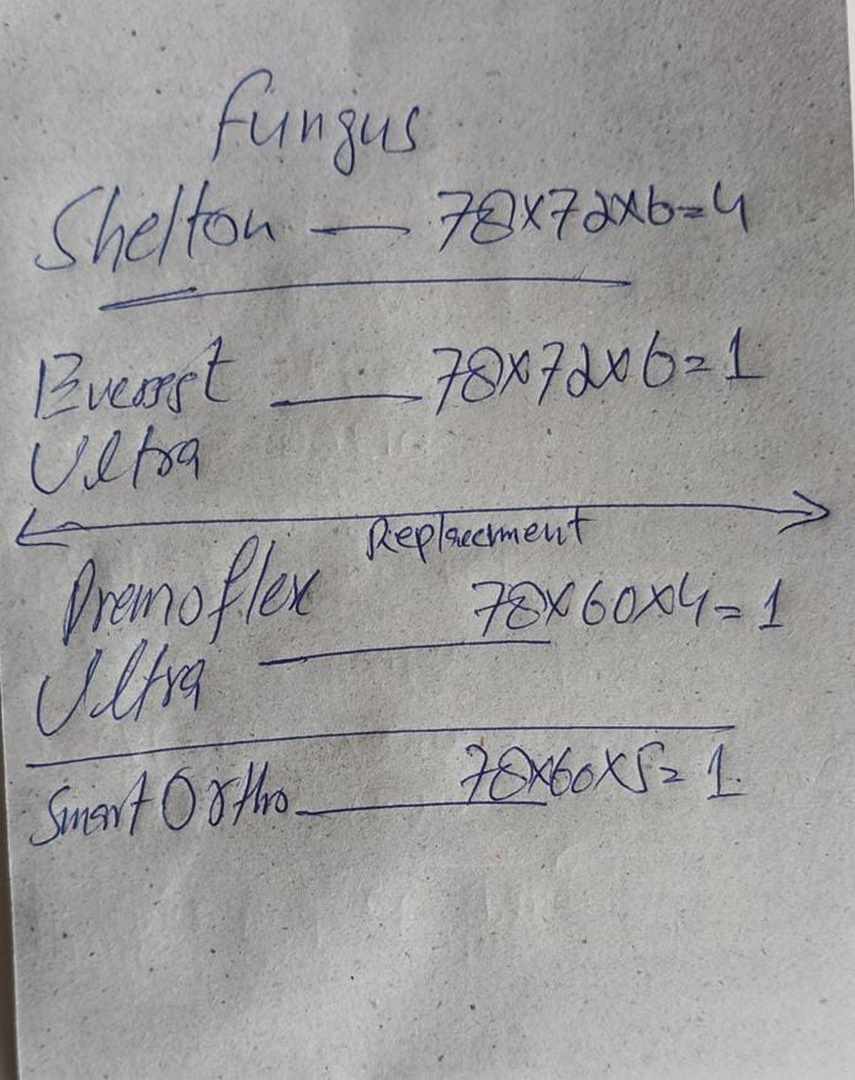 fungus
Shelton — 78x72x6=4
Everest — 78x72x6=1
Ultra
Replacement
Premoflex 78x60x4=1
Ultra —
Smart Ortho — 78x60x5=1